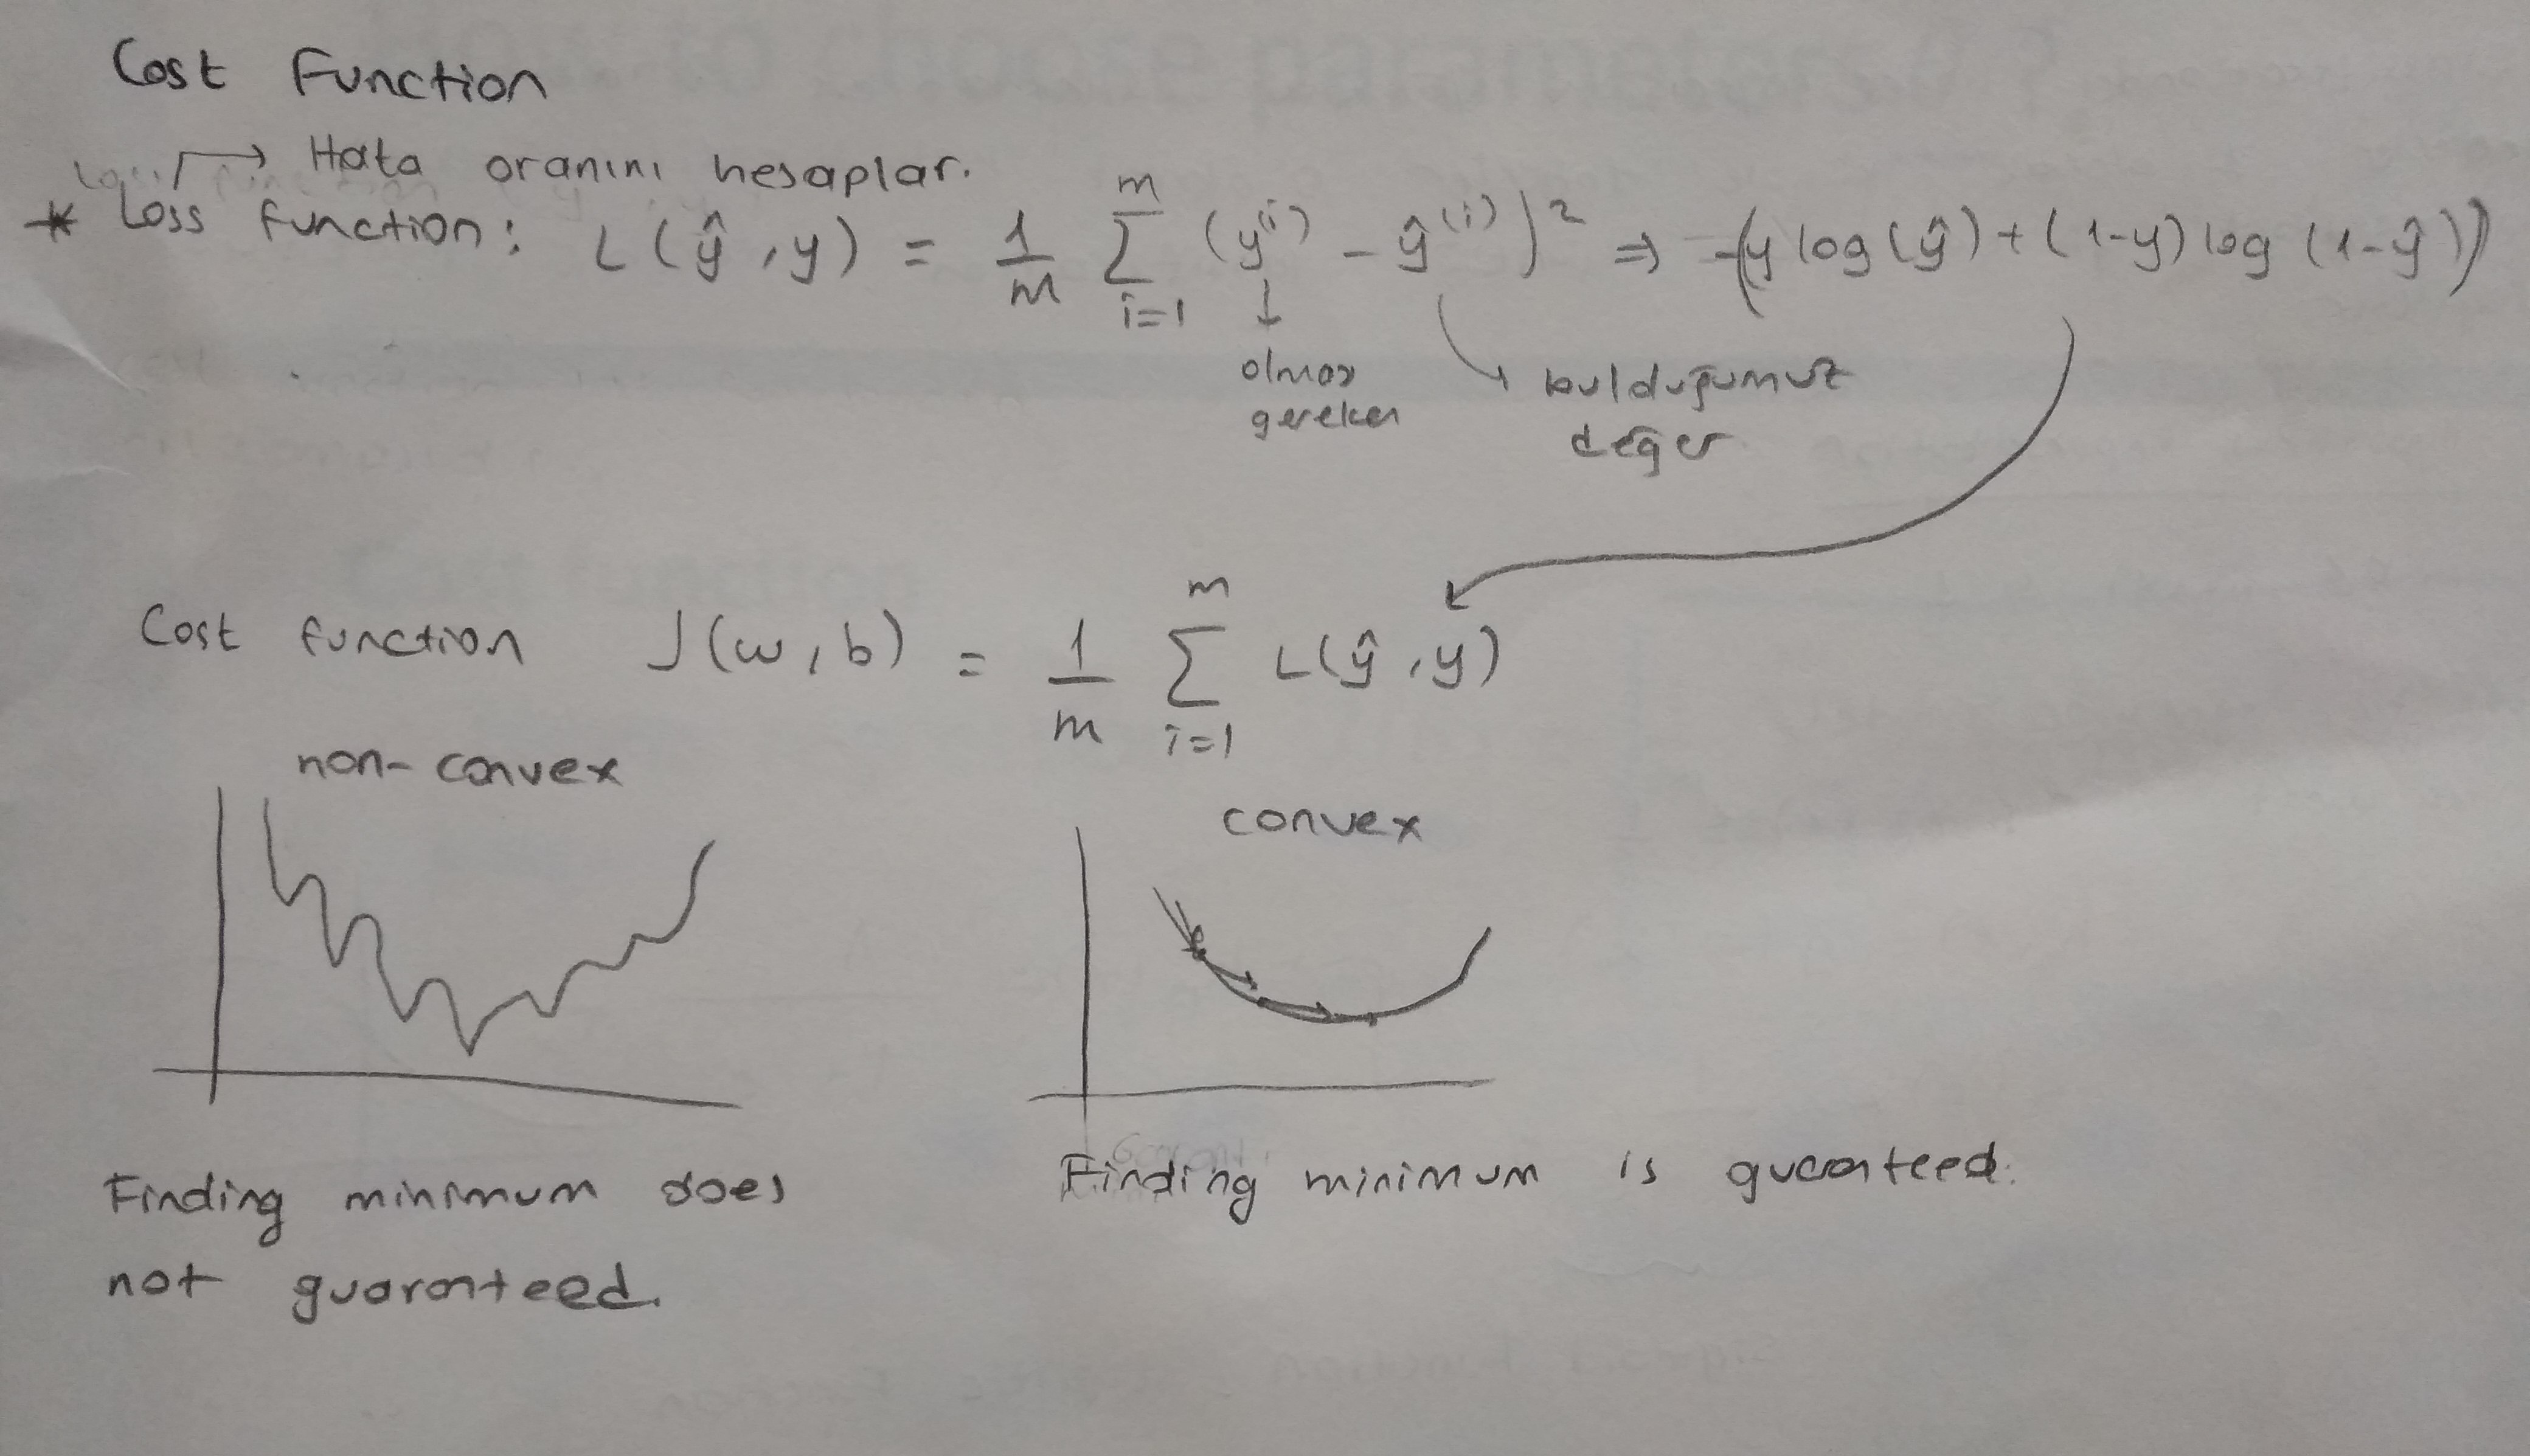 Cost Function
→ Hata oranını hesaplar.
* Loss function: L(ŷ,y) = 1/m ∑_{i=1}^{m} (y^{(i)} - ŷ^{(i)})² ⇒ -(y log(ŷ)+(1-y) log (1-ŷ))
olması gereken
bulduğumuz
değer
Cost function J(w,b) = 1/m ∑_{i=1}^{m} L(ŷ,y)
non-convex
convex
Finding minimum does
not guaranteed.
Finding minimum is guaranteed.